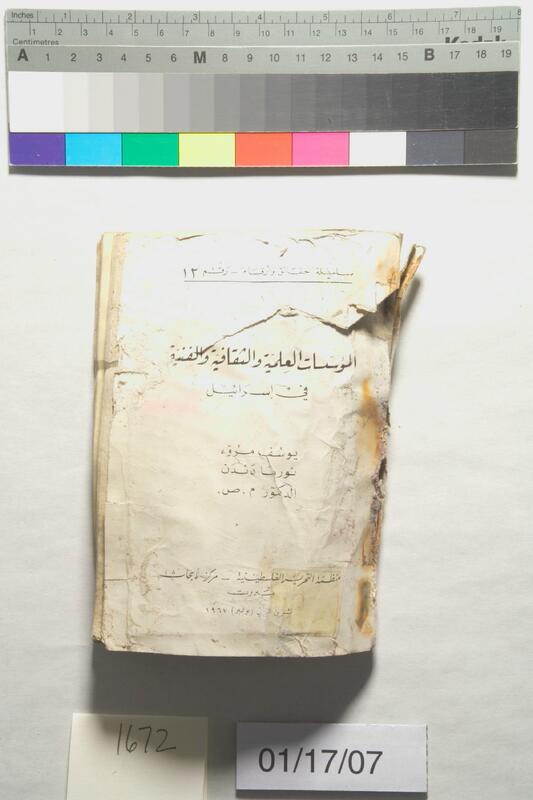 Inches 1 2 3 4 5 6 7 8
1 2 3 4 5 6 7 8 9 10 11 12 13 14 15 16 17 18 19
Centimetres
A 1 2 3 4 5 6 M 8 9 10 11 12 13 14 15 B 17 18 19
سلسلة حقائق وأرقام - رقم ١٢
المؤسسات العلمية والثقافية والفنية
في إسرائيل
يوسف مروه
نورما دندن
الدكتور م. ص.
منظمة التحرير الفلسطينية - مركز الأبحاث
بيروت
تشرين (نوفمبر) ١٩٦٧
1672
01/17/07